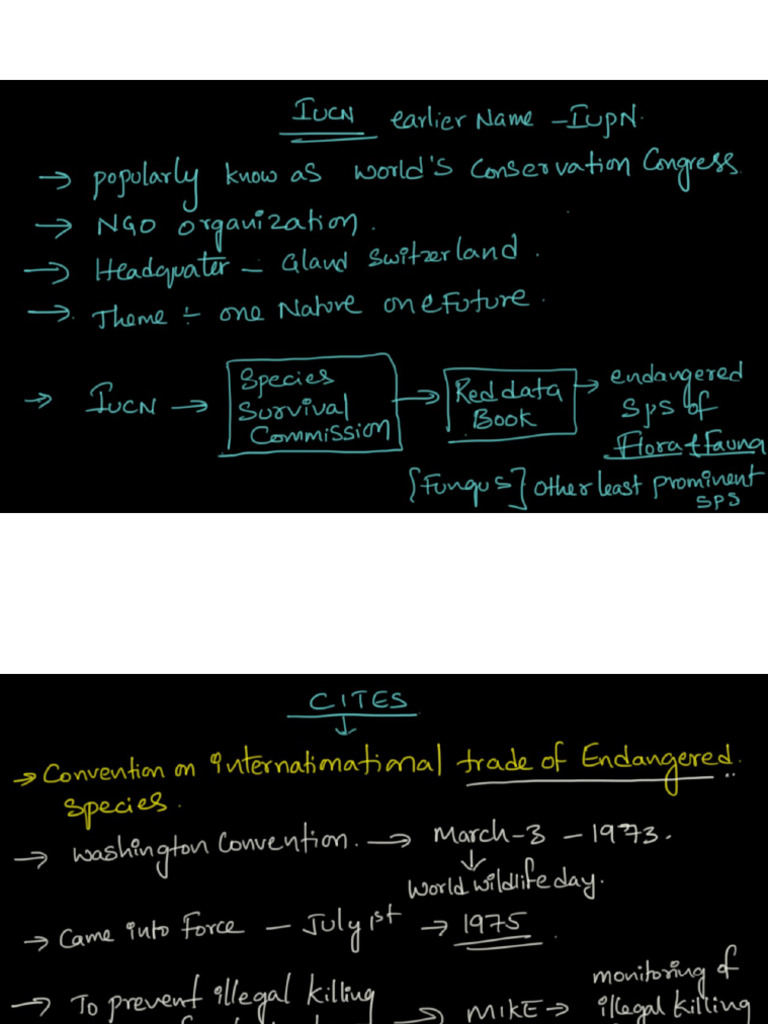 IUCN earlier Name - IUPN.
→ popularly know as world's Conservation Congress
→ NGO organization.
→ Headquater - Gland Switzerland.
→ Theme :- one Nature one Future.
→ IUCN → Species Survival Commission → Red data Book → endangered sps of Flora & Fauna
[Fungus] other least prominent sps
CITES
↓
→ Convention on internatimational trade of Endangered
species.
→ Washington Convention. → March - 3 - 1973.
↓
World wildlife day.
→ Came into Force - July 1st → 1975.
→ To prevent illegal killing → MIKE → monitoring of illegal killing